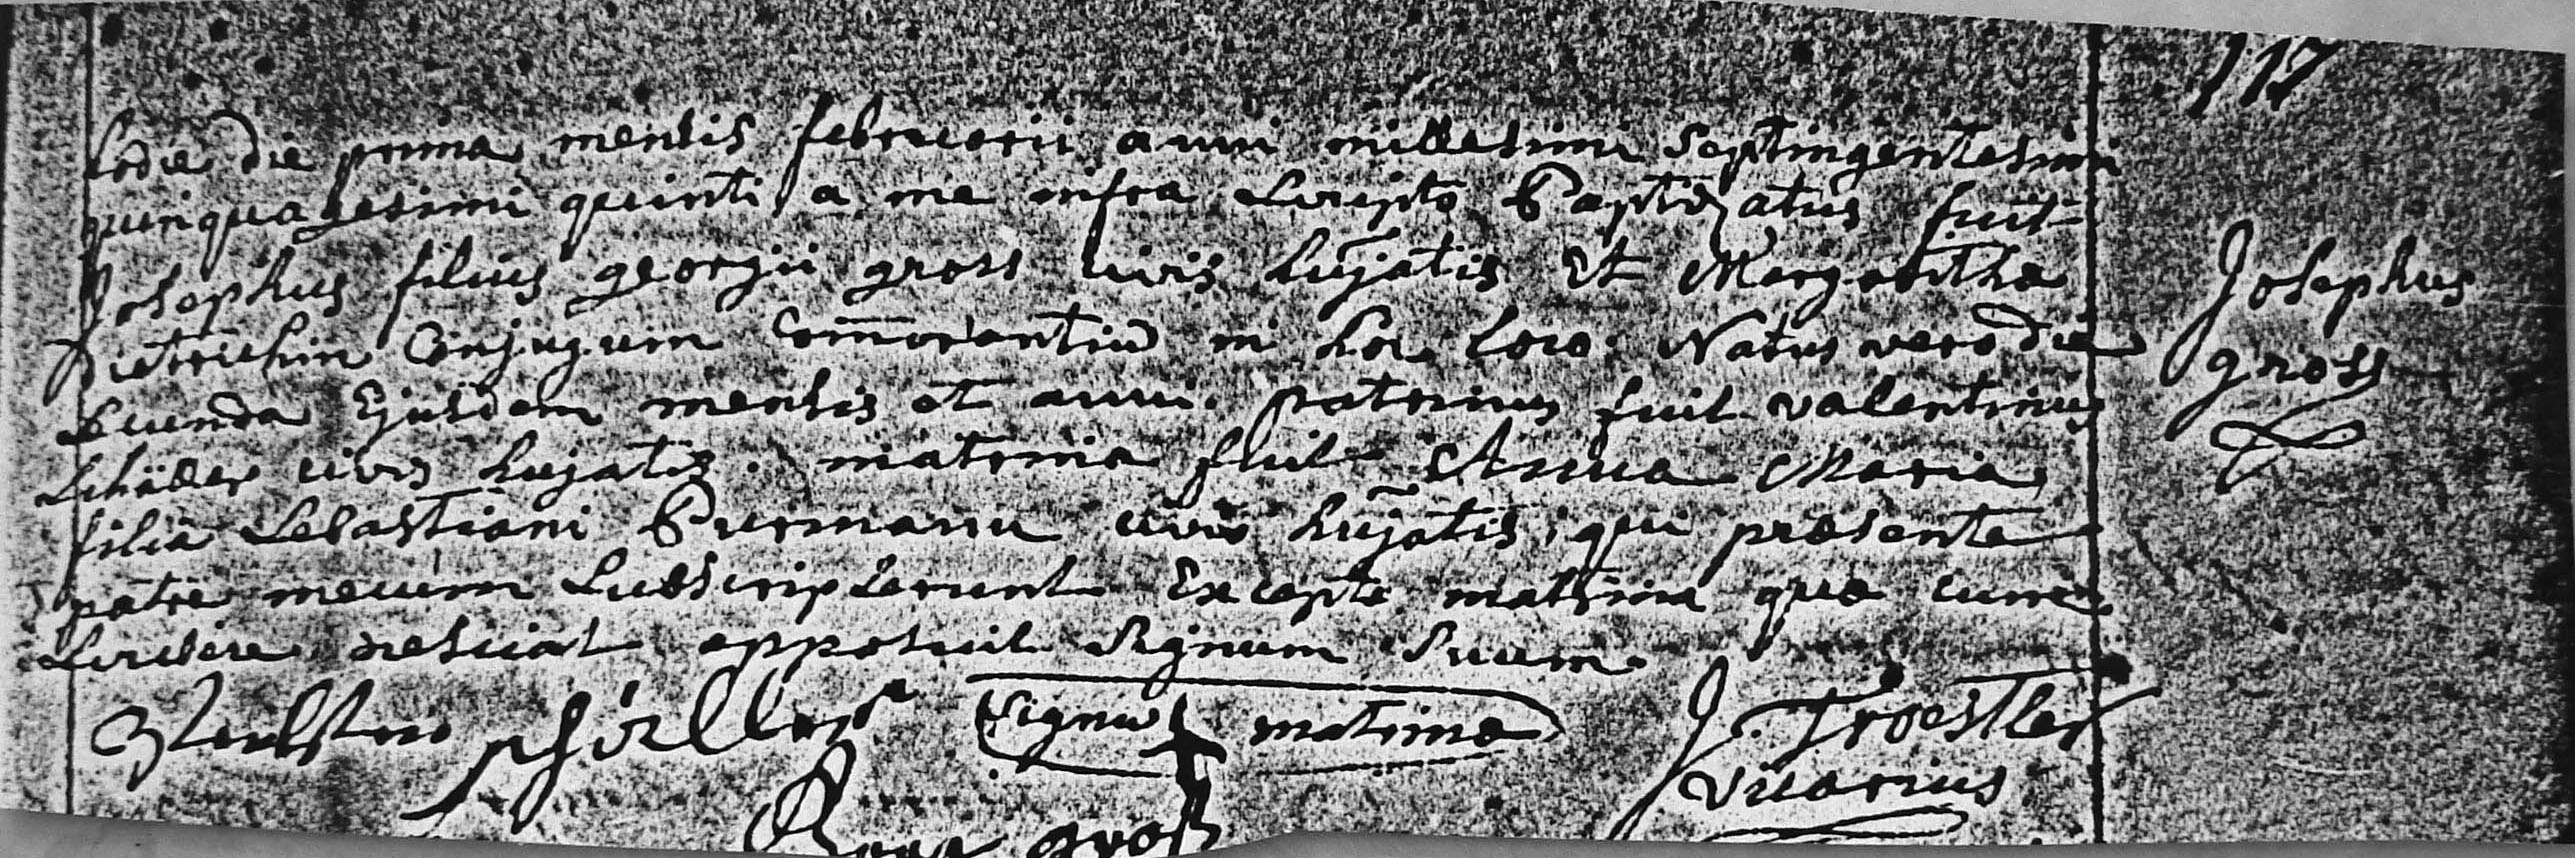 117
hodie die prima mensis februarii anni millesimi septingentesimi
quinquagesimi quinti a me infra scripto baptizatus fuit
Josephus filius georgii gross civis hujatis et Margaritha
Dietrichin Conjugum comorantiū in hoc loco. Natus vero die
secunda Ejusdem mensis et anni. patrinus fuit valentinus
schäller civis hujatis. matrina fuit Anna Maria
filia sebastiani burmann civis hujatis, qui presente
patre mecum subscripserunt Excepta matrina que cum
scribere nesciat apposuit signum suum.
Josephus
gross
signū matrine
J. Troestler
vicarius
groß